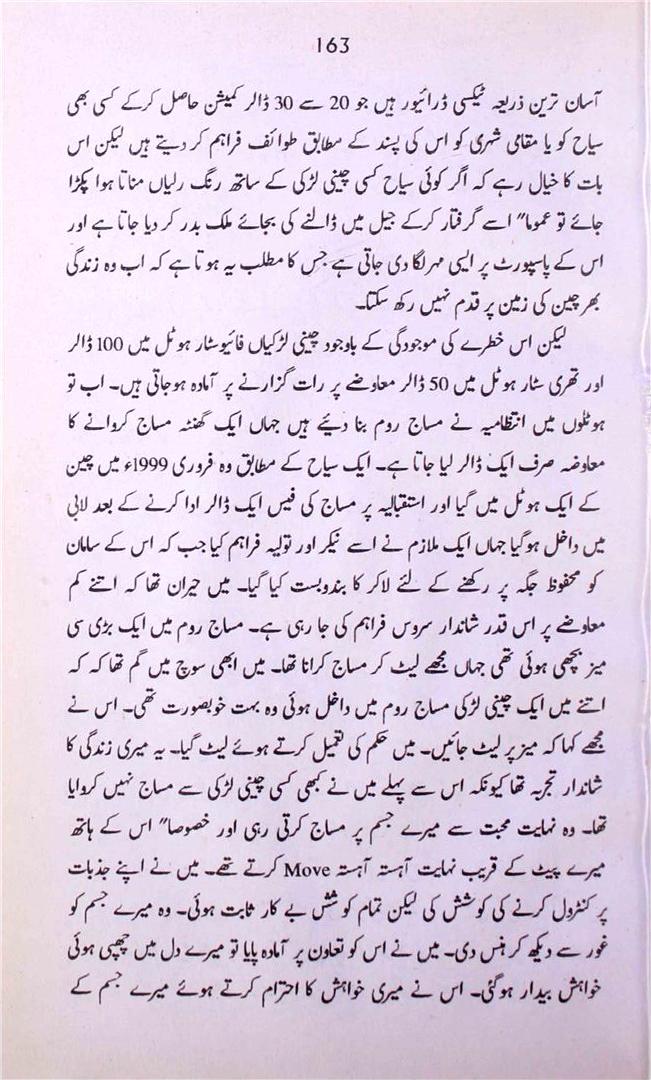 163
آسان ترین ذریعہ ٹیکسی ڈرائیور ہیں جو 20 سے 30 ڈالر کمیشن حاصل کرکے کسی بھی
سیاح کو یا مقامی شہری کو اس کی پسند کے مطابق طوائف فراہم کر دیتے ہیں لیکن اس
بات کا خیال رہے کہ اگر کوئی سیاح کسی چینی لڑکی کے ساتھ رنگ رلیاں مناتا ہوا پکڑا
جائے تو عموما" اسے گرفتار کرکے جیل میں ڈالنے کی بجائے ملک بدر کر دیا جاتا ہے اور
اس کے پاسپورٹ پر ایسی مہر لگا دی جاتی ہے جس کا مطلب یہ ہوتا ہے کہ اب وہ زندگی
بھر چین کی زمین پر قدم نہیں رکھ سکتا۔
لیکن اس خطرے کی موجودگی کے باوجود چینی لڑکیاں فائیو سٹار ہوٹل میں 100 ڈالر
اور تھری سٹار ہوٹل میں 50 ڈالر معاوضے پر رات گزارنے پر آمادہ ہو جاتی ہیں۔ اب تو
ہوٹلوں میں انتظامیہ نے مساج روم بنا دیئے ہیں جہاں ایک گھنٹہ مساج کروانے کا
معاوضہ صرف ایک ڈالر لیا جاتا ہے۔ ایک سیاح کے مطابق وہ فروری 1999ء میں چین
کے ایک ہوٹل میں گیا اور استقبالیہ پر مساج کی فیس ایک ڈالر ادا کرنے کے بعد لابی
میں داخل ہوگیا جہاں ایک ملازم نے اسے نیکر اور تولیہ فراہم کیا جب کہ اس کے سامان
کو محفوظ جگہ پر رکھنے کے لئے لاکر کا بندوبست کیا گیا۔ میں حیران تھا کہ اتنے کم
معاوضے پر اس قدر شاندار سروس فراہم کی جا رہی ہے۔ مساج روم میں ایک بڑی سی
میز بچھی ہوئی تھی جہاں مجھے لیٹ کر مساج کرانا تھا۔ میں ابھی سوچ میں گم تھا کہ کہ
اتنے میں ایک چینی لڑکی مساج روم میں داخل ہوئی وہ بہت خوبصورت تھی۔ اس نے
مجھے کہا کہ میز پر لیٹ جائیں۔ میں حکم کی تعمیل کرتے ہوئے لیٹ گیا۔ یہ میری زندگی کا
شاندار تجربہ تھا کیونکہ اس سے پہلے میں نے کبھی کسی چینی لڑکی سے مساج نہیں کروایا
تھا۔ وہ نہایت محبت سے میرے جسم پر مساج کرتی رہی اور خصوصا" اس کے ہاتھ
میرے پیٹ کے قریب نہایت آہستہ آہستہ Move کرتے تھے۔ میں نے اپنے جذبات
پر کنٹرول کرنے کی کوشش کی لیکن تمام کوشش بے کار ثابت ہوئی۔ وہ میرے جسم کو
غور سے دیکھ کر ہنس دی۔ میں نے اس کو تعاون پر آمادہ پایا تو میرے دل میں چھپی ہوئی
خواہش بیدار ہوگئی۔ اس نے میری خواہش کا احترام کرتے ہوئے میرے جسم کے